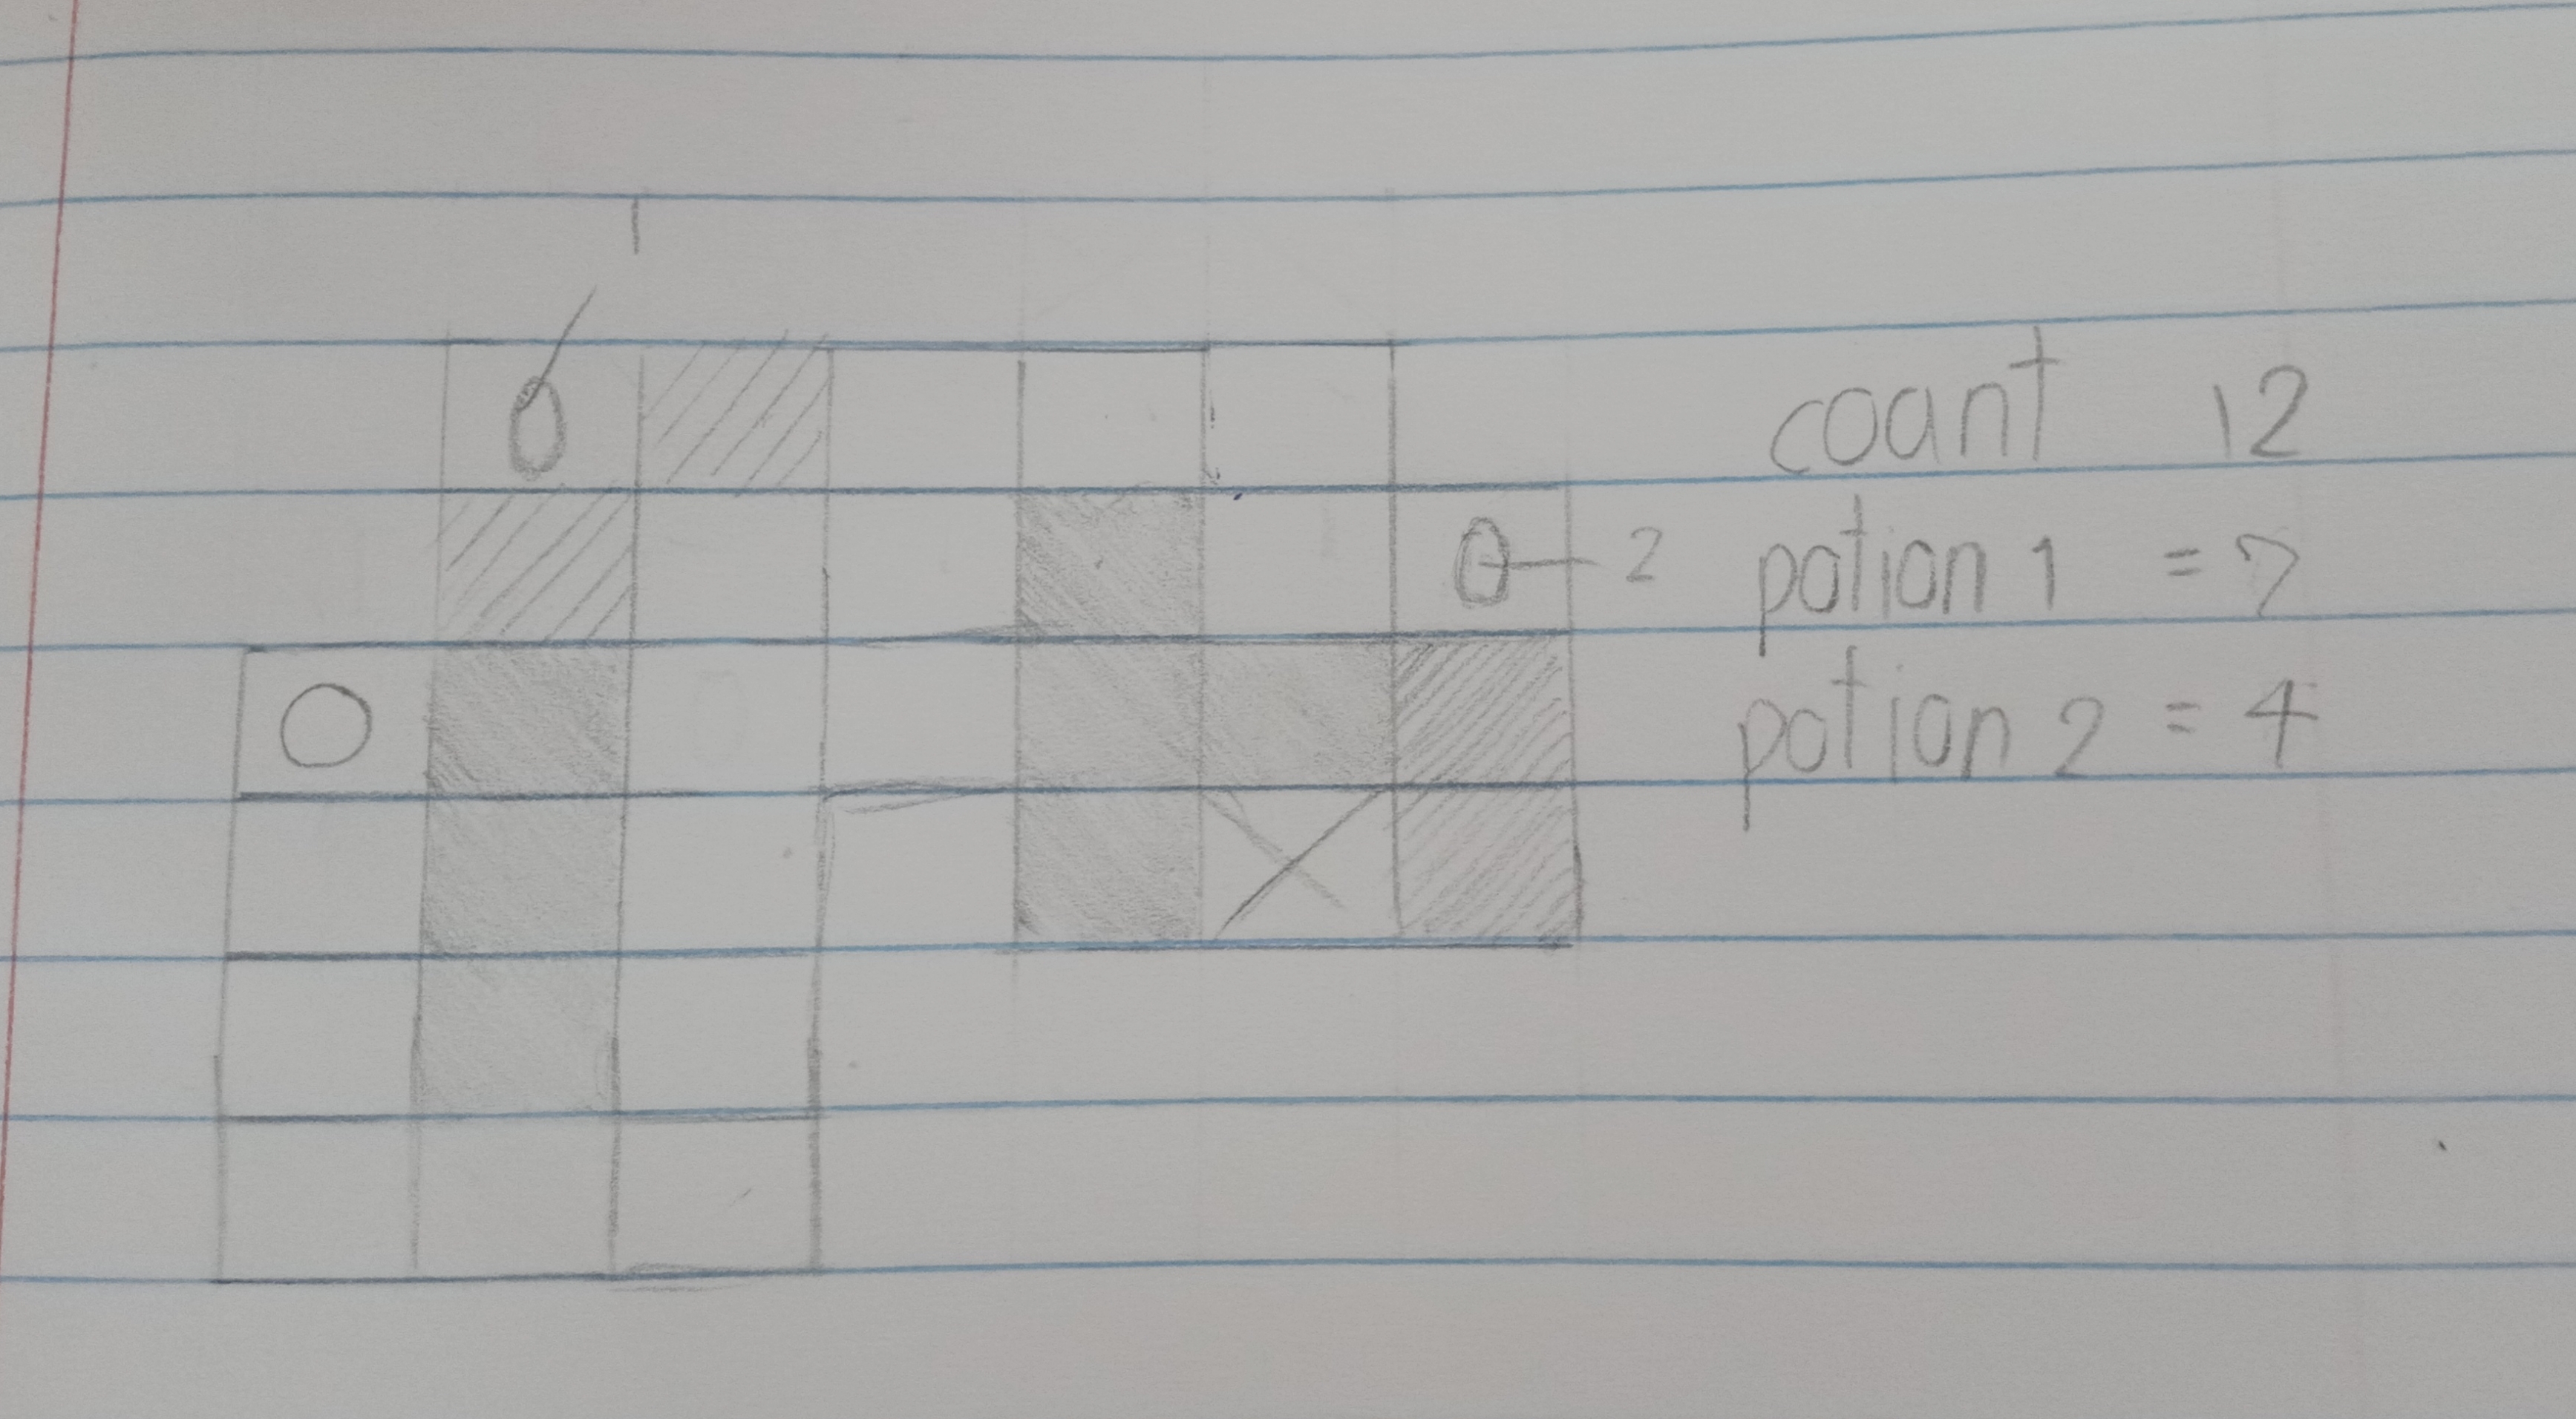 1
coant 12
2
potion 1 = 7
potion 2 = 4